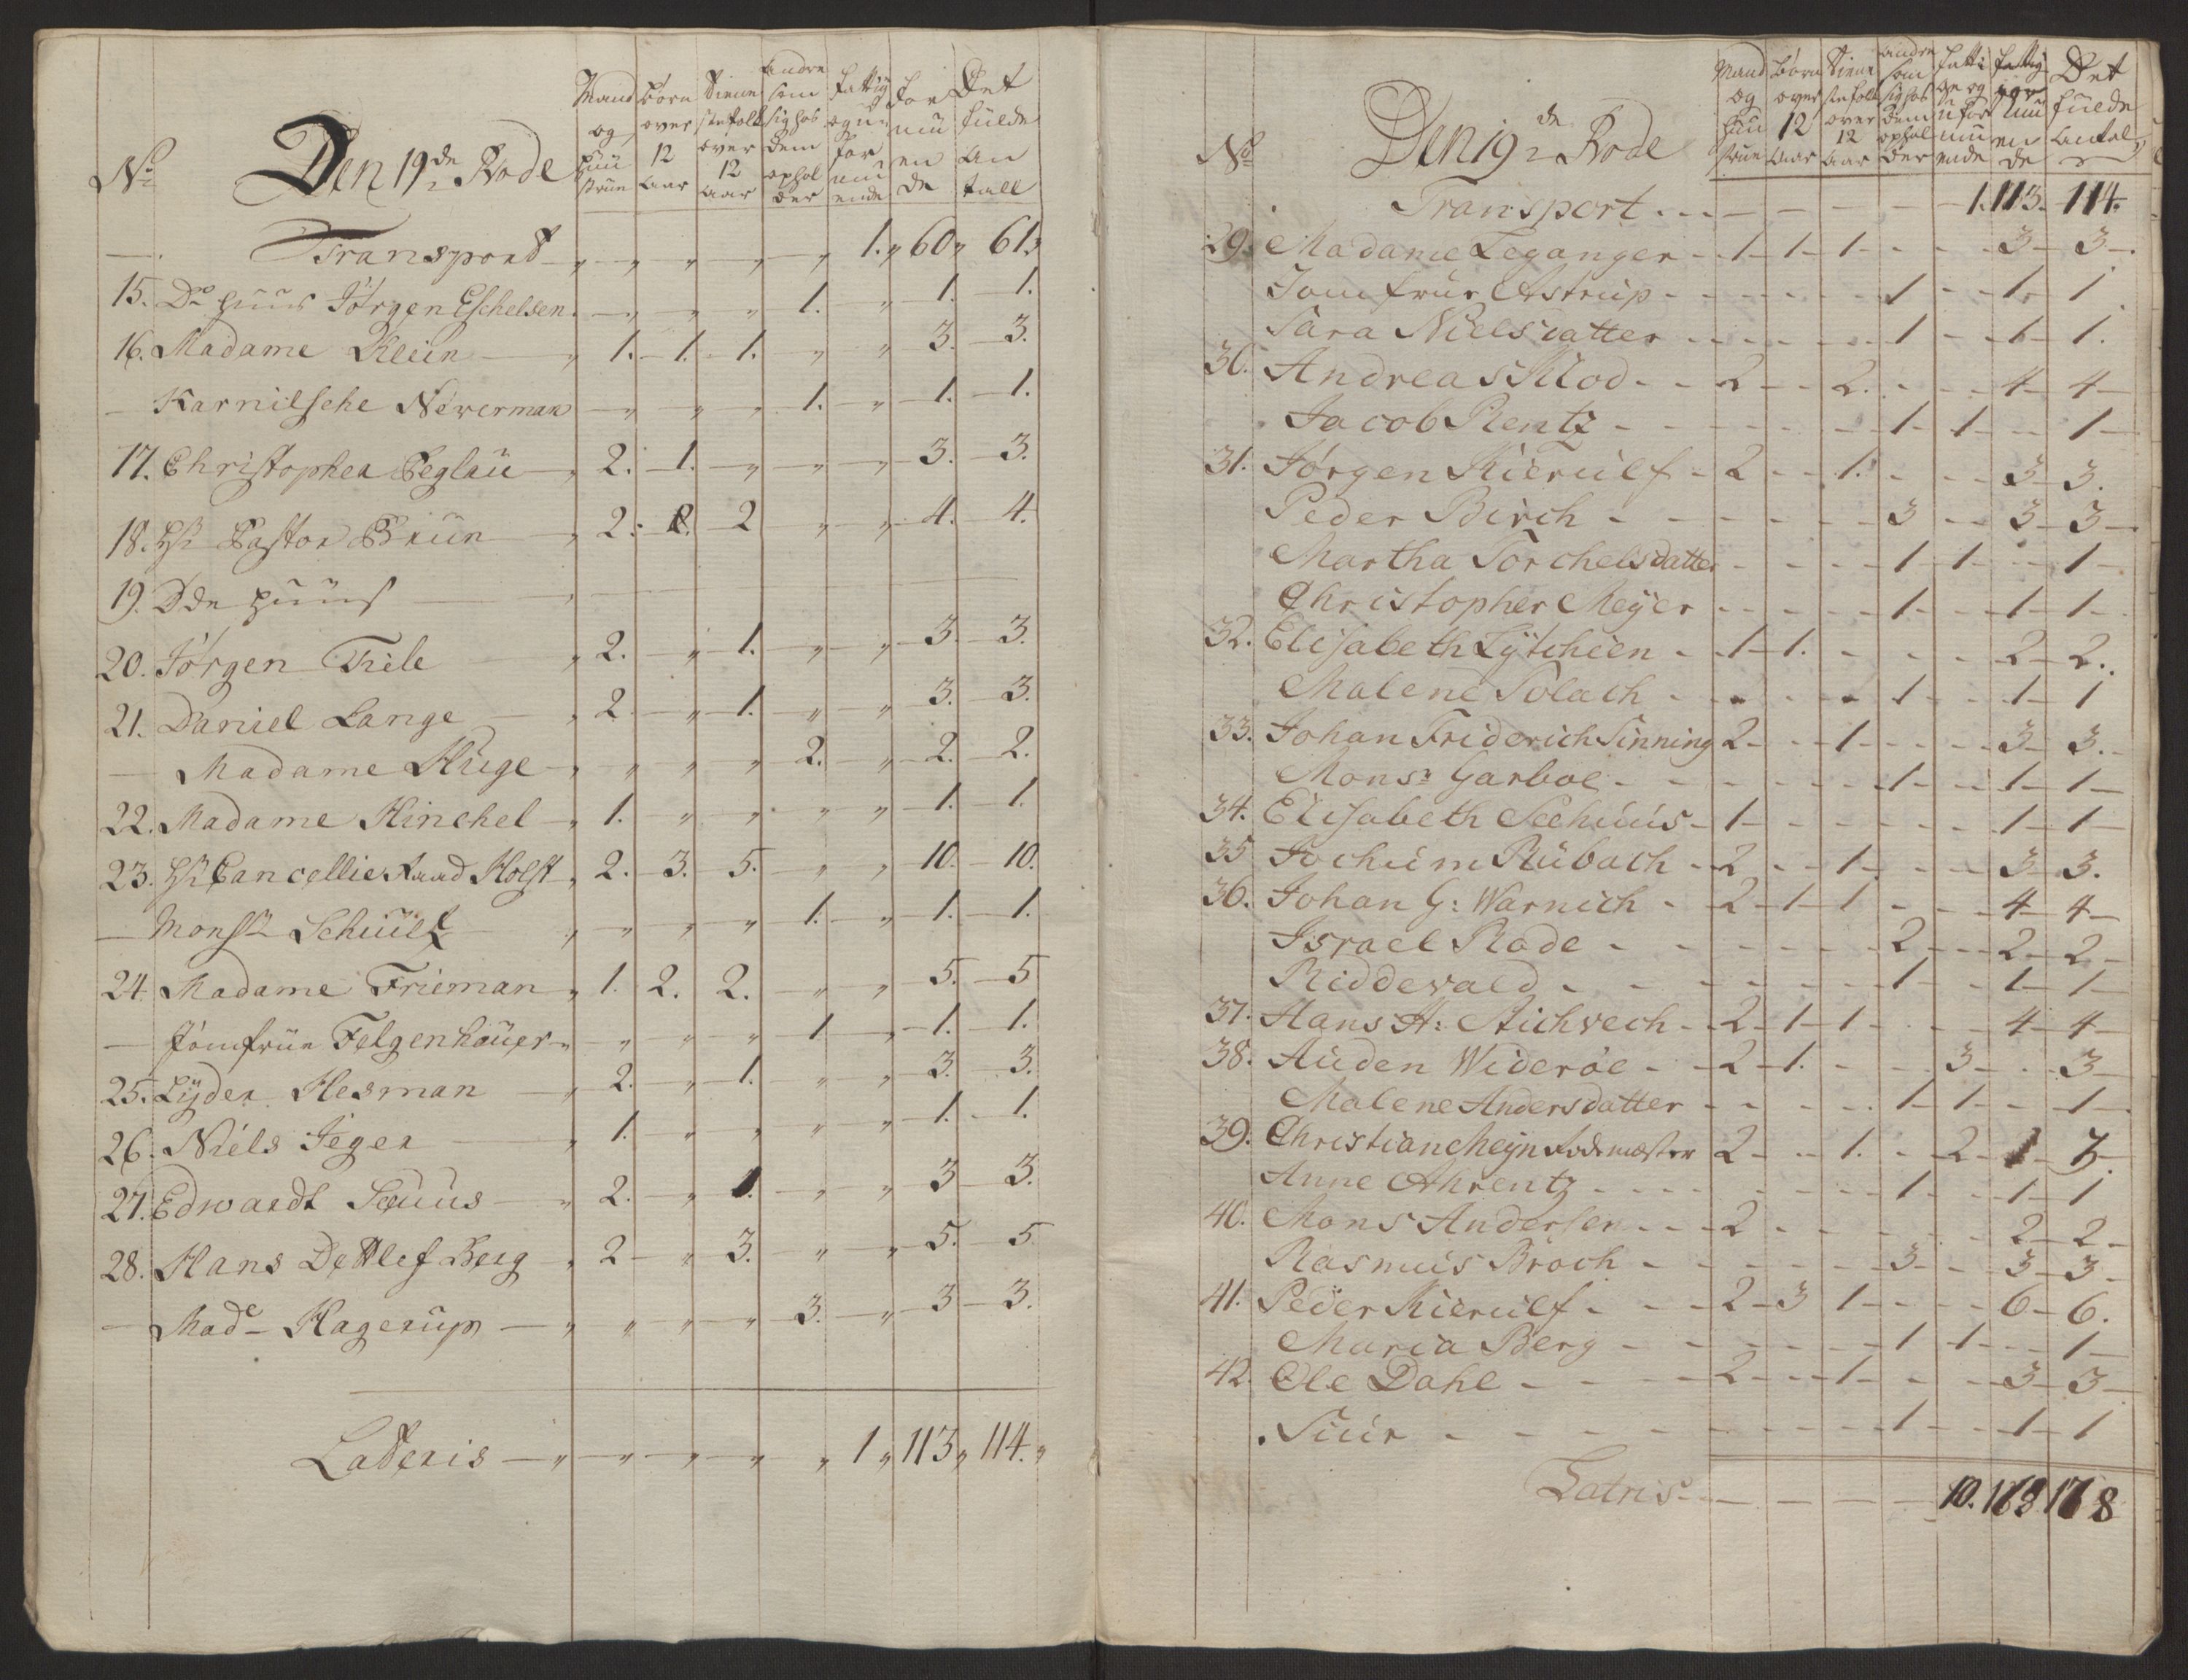 No
Den 19de Rode
Mand og Huustrue
Børn over 12 Aar
Tieneste folk over 12 Aar
Andre som sig hos dem ophol der
Fattig og u= for mu ende
For mu en de
Det fulde An tall
Transport „ „ „ „ „ 1. „ 60 „ 61.
15. Do Huus Jørgen Eschelsen „ „ „ 1. „ 1. 1.
16. Madame Klein 1. 1. 1. „ „ 3. 3.
Karnilsche Neverman „ „ „ 1. „ 1. 1.
17. Christopher Beglau 2. 1. „ „ „ 3. 3.
18. Hr Pastor Bruun 2. 2 „ „ 4. 4.
19. Dde Huus
20. Jørgen Fiele 2. „ 1. „ „ 3. 3.
21. Daniel Lange 2. „ 1. „ „ 3. 3.
Madame Kruge „ „ „ 2. „ 2. 2.
22. Madame Hinchel 1. „ „ „ „ 1. 1.
23. Hr Cancellie Raad Holst 2. 3. 5. „ „ 10. 10.
Monsr Schultz „ „ „ 1. „ 1. 1.
24. Madame Frieman 1. 2. 2. „ „ 5. 5
Jomfrue Felgenhauer „ „ „ 1 „ 1. 1.
25. Lyder Hesman 2. „ 1. „ „ 3. 3.
26. Niels Jeger 1. „ „ „ „ 1. 1.
27. Edwardt Seuus 2. „ 1. „ „ 3 3.
28. Hans Dettlef Berg 2 „ 3. „ „ 5. 5
Made Hagerup „ „ „ 3. „ 3 3.
Latteris „ „ „ „ „ 1 „ 113 „ 114. „
No
Den 19de Rode
Mand og Huu strue
Børn over 12 Aar
Tiene ste folk over 12 Aar
Andre som sig hos dem ophol der
Fatti ge og u for mu ende
mu en de
Det fulde Antal
Transport - - - - - 1. 113. 114.
29. Madame Leganger 1 1 1 - - 3 3
Jomfrue Astrup - - - 1 - 1 1
Sara Nielsdatter - - - 1 - 1 1.
30. Andreas Klod 2 - 2. - - 4 4
Jacob Rentz - - - 1 1 - 1
31. Jørgen Kierulf 2 - 1. - - 3 3.
Peder Birch - - - 3 - 3 3
Martha Torchelsdatter - - - 1 1 - 1
Christopher Meyer - - - 1 - 1 1
32. Elisabeth Lytchien 1 1. - - - 2 2.
Malene Solach - - - 1 - 1 1
33. Johan Friderich Sinning 2 - 1 - - 3 3.
Monsr Garboe - - - 1 - 1 1
34. Elisabeth Seehuus 1 - - - - 1 1
35 Jochum Rubach 2 - 1 - - 3 3.
36. Johan G: Warnich 2 1 1 - - 4 4
Israel Rode - - - 2 - 2 2
Riddevald - - - 1 - 1 1
37. Hans H: Stichvech 2 1 1 - - 4 4
38. Auden Widerøe 2 1. - - 3 - 3
Malene Andersdatter - - - 1 1 - 1
39. Christian Meyn Rodemester 2 - 1. - 2 1 3.
Anne Ahrentz - - - 1 - 1 1
40. Mons Andersen 2 - - - - 2 2
Rasmus Broch - - - 3 - 3 3
41. Peder Kierulf 2 3 1 - - 6 6.
Maria Berg - - - 1 1 - 1
42. Ole Dahl 2 - 1 - - 3 3
Suur - - - 1 - 1 1
Latris - - - - 10. 168 178